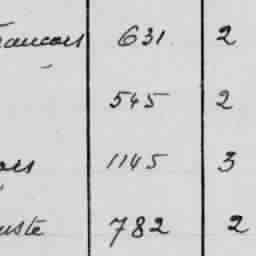 rancois 631 2
545 2
ois 1145 3
uste 782 2